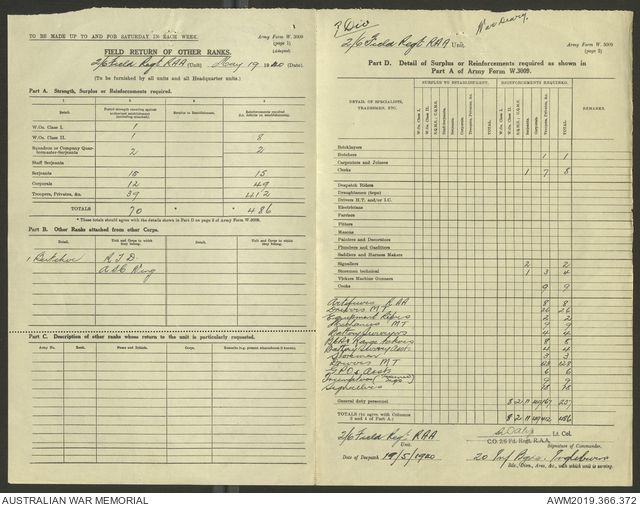 TO BE MADE UP TO AND FOR SATURDAY IN EACH WEEK.
Army Form W. 3009
(page 1)
(Adapted)
FIELD RETURN OF OTHER RANKS.
2/6 Field Regt RAA (Unit) May 19 1940 (Date).
(To be furnished by all units and all Headquarter units.)
Part A. Strength, Surplus or Reinforcements required.
1 2 3 4
Detail.
Surplus to Establishment.
W.Os. Class I. 1
W.Os. Class II. 1 8
Squadron or Company Quartermaster-Serjeants 2 2
Staff Serjeants
Serjeants 15 15
Corporals 12 49
Troopers, Privates, &c. 39 412
TOTALS 70 * * 486
* These totals should agree with the details shown in Part D on page 2 of Army Form W.3009.
Part B. Other Ranks attached from other Corps.
Detail. Unit and Corps to which they belong. Detail. Unit and Corps to which they belong.
1 Butcher R T D
Part C. Description of other ranks whose return to the unit is particularly requested.
Army No. Rank. Name and Initials. Corps.
2 Div
War Diary.
2/6 Field Regt RAA Unit.
Army Form W. 3009
(page 2)
Part D. Detail of Surplus or Reinforcements required as shown in
Part A of Army Form W.3009.
DETAIL OF SPECIALISTS, TRADESMEN, ETC.
SURPLUS TO ESTABLISHMENT.
REINFORCEMENTS REQUIRED.
REMARKS.
W.Os. Class I.
W.Os. Class II.
Staff-Serjeants
Serjeants
Corporals
Troopers, Privates, &c.
TOTAL
Bricklayers
Butchers 1 1
Carpenters and Joiners
Clerks 1 7 8
Despatch Riders
Draughtsmen (tops)
Drivers H.T. and/or I.C.
Electricians
Farriers
Fitters
Masons
Painters and Decorators
Plumbers and Gasfitters
Saddlers and Harness Makers
Signallers 2 2
Storemen technical 1 3 4
Vickers Machine Gunners
Cooks 9 9
Artificers RAA 8 8
Drivers MT 26 26
2 2
Mechanics MT 9 9
Battery Surveyors 4 4
8 8
4 4
Storeman 3 3
Drivers M T 128
G.P.O. Assts 6 6
9 9
Signallers 18 18
General duty personnel
TOTALS (to agree with Columns 3 and 4 of Part A.) 8 2 486
Lt. Col.
C.O. 2/6 Fd. Regt. R.A.A.
Signature of Commander.
2/6 Field Regt RAA
Unit.
Date of Despatch 19/5/1940
20 Inf Bgde. Ingleburn
Bde., Divn., Area, &c., with which unit is serving.
AUSTRALIAN WAR MEMORIAL
AWM2019.366.372